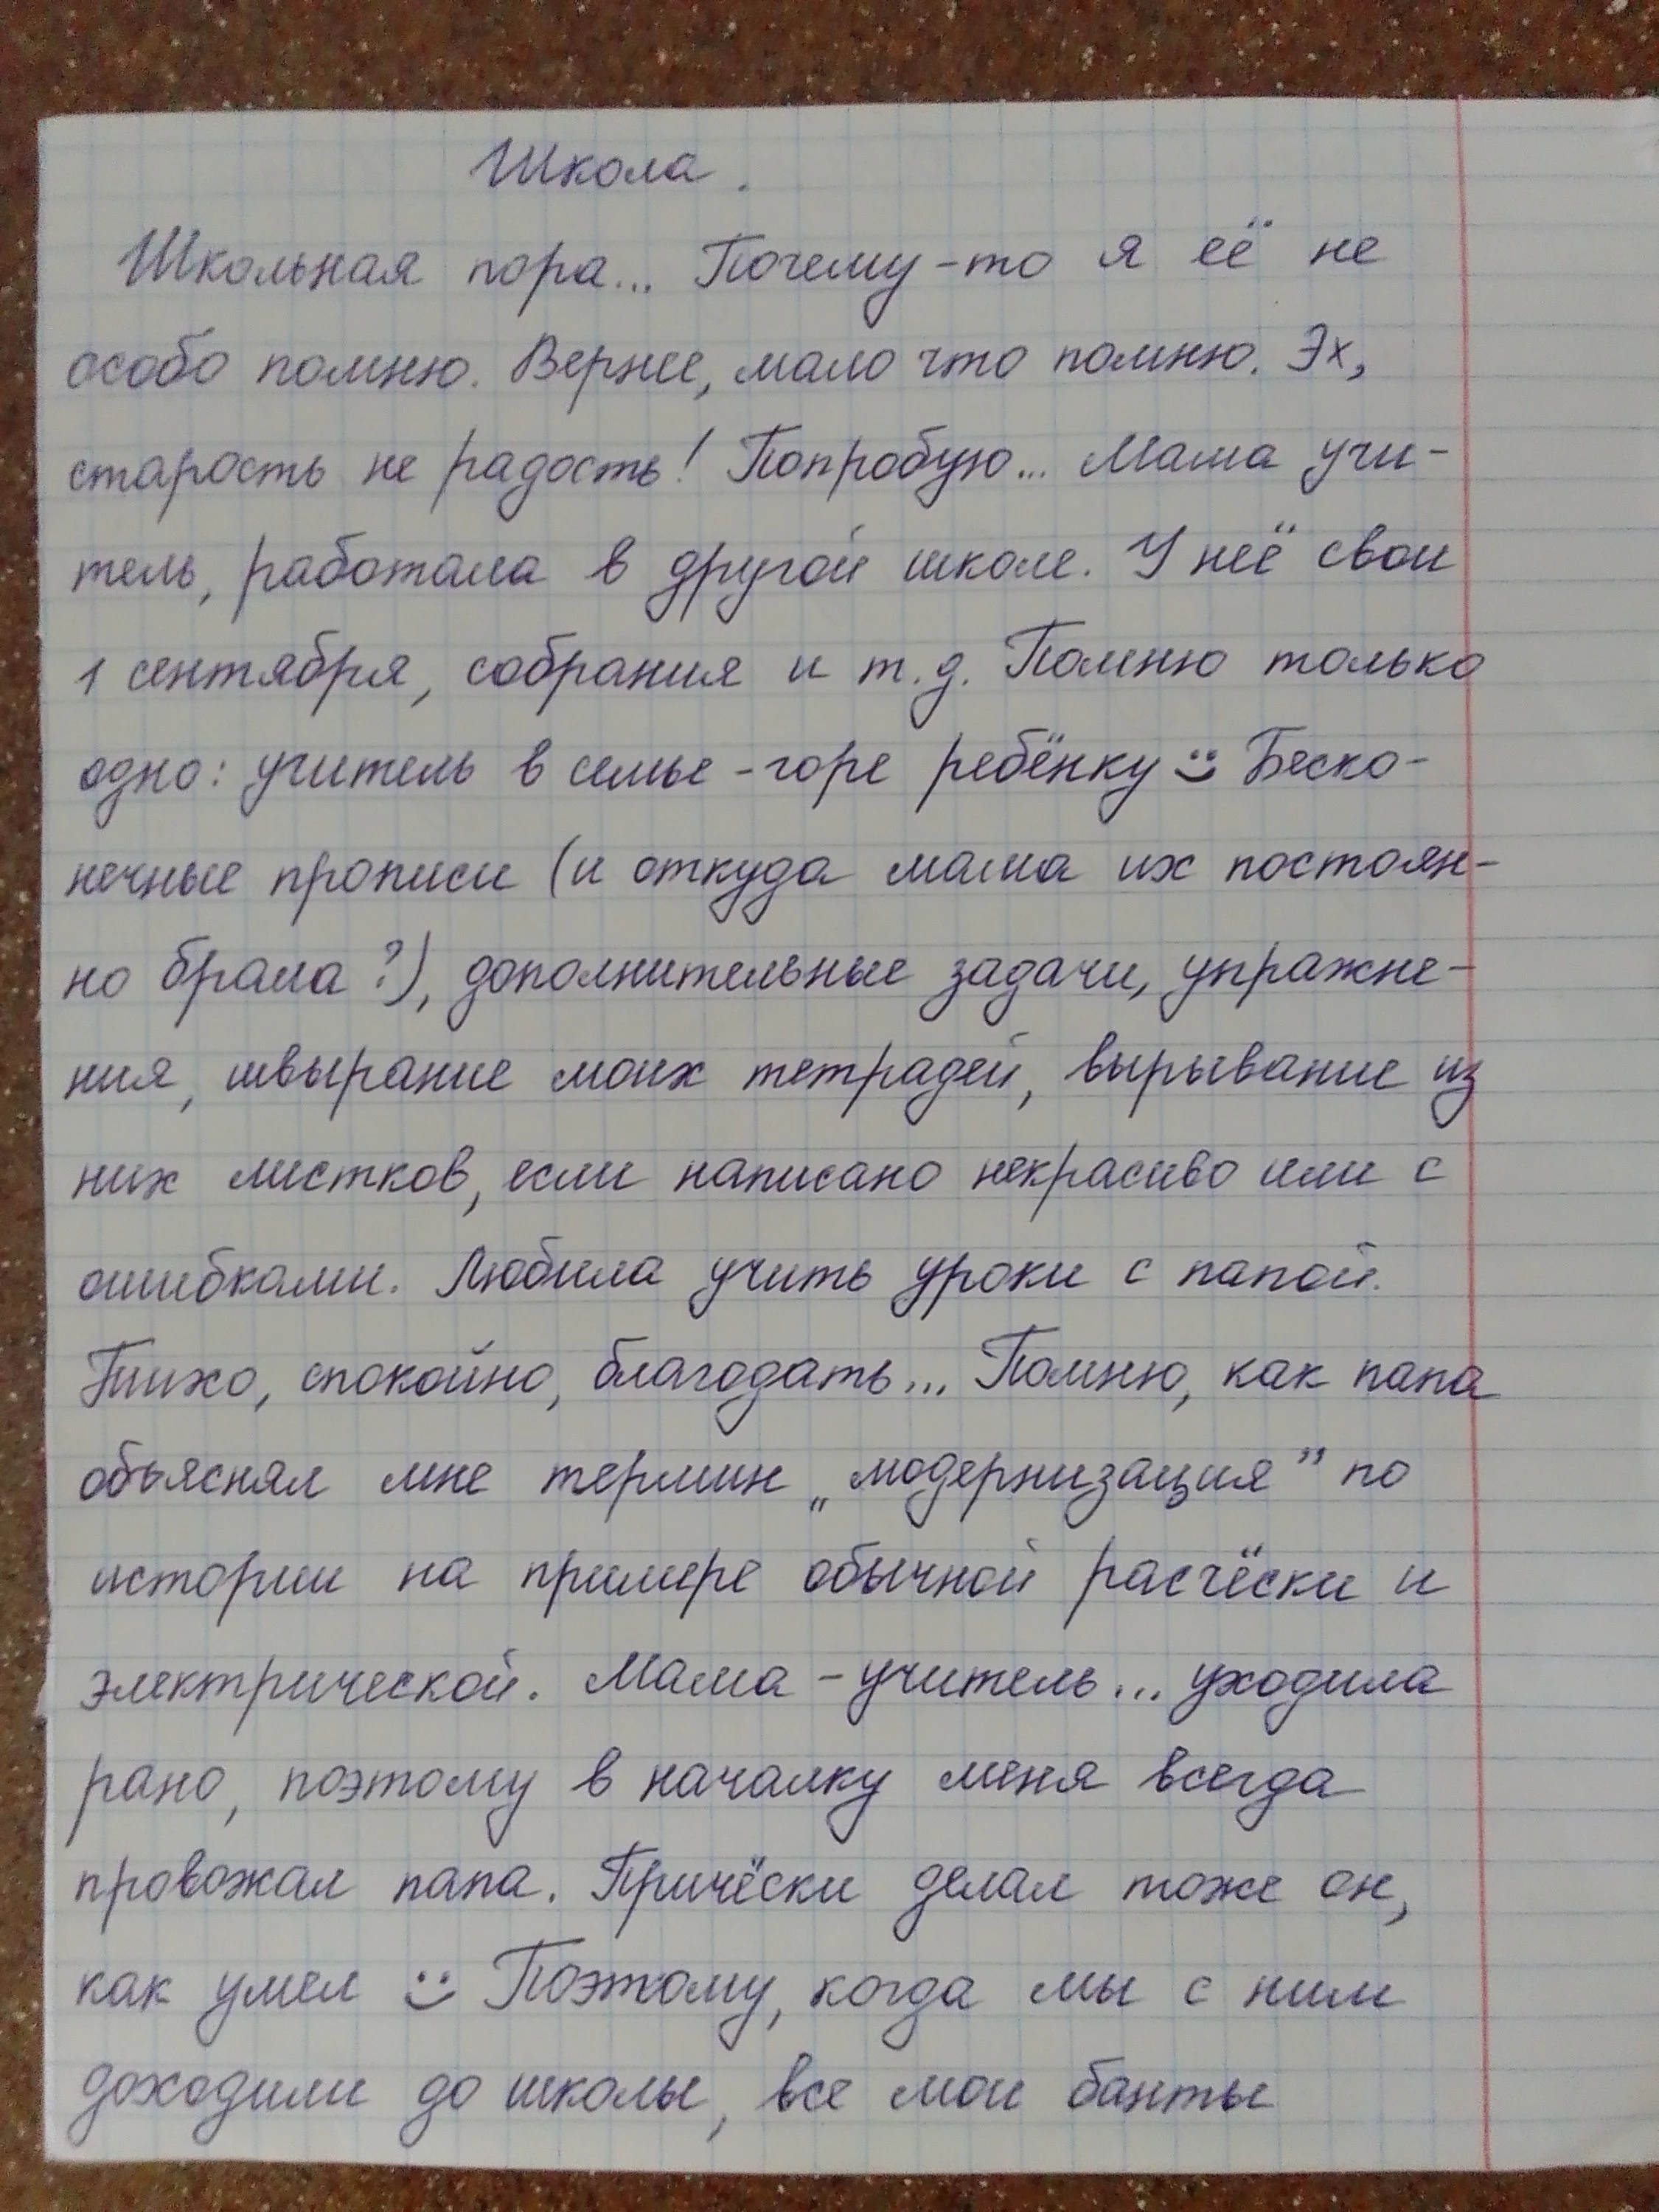 Школа.
Школьная пора... Почему-то я её не
особо помню. Вернее, мало что помню. Эх,
старость не радость! Попробую... Мама учи-
тель, работала в другой школе. У неё свои
1 сентября, собрания и т.д. Помню только
одно: учитель в семье - горе ребёнку :) Беско-
нечные прописи (и откуда мама их постоян-
но брала?), дополнительные задачи, упражне-
ния, швырание моих тетрадей, вырывание из
них листков, если написано некрасиво или с
ошибками. Любила учить уроки с папой.
Тихо, спокойно, благодать... Помню, как папа
объяснял мне термин „модернизация” по
истории на примере обычной расчёски и
электрической. Мама - учитель... уходила
рано, поэтому в началку меня всегда
провожал папа. Причёски делал тоже он,
как умел :) Поэтому, когда мы с ним
доходили до школы, все мои банты